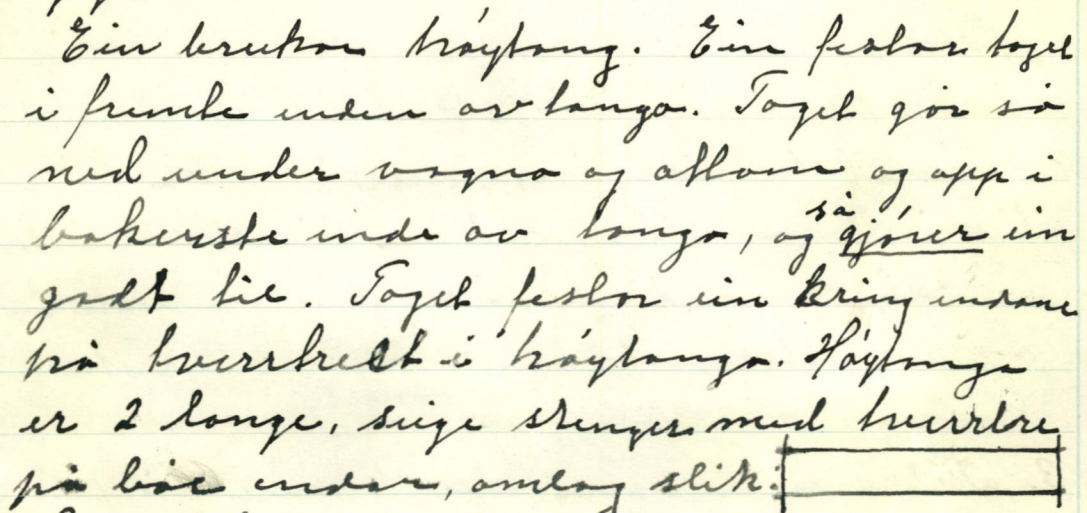 Ein brukar høytong. Ein festar taget
i fremste enden av tonga. Taget går så
ned under vogna og attom og opp i
bakerste ende av tonga, og så gjører ein
godt til. Taget festar ein kring endane
på tverrtreet i høytonga. Høytonga
er 2 lange, seige stenger med tverrtre
på båe endar, omlag slik: